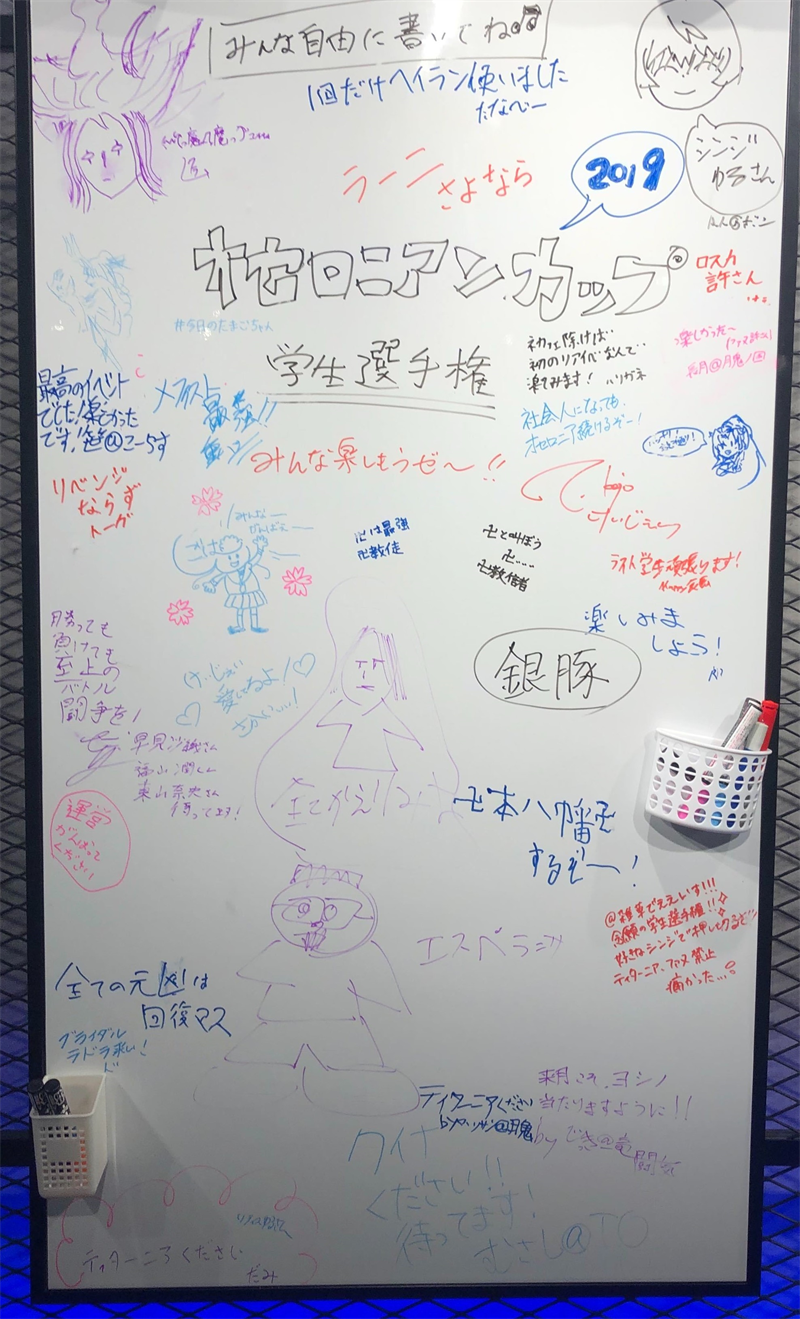 みんな自由に書いてね
1回だけヘイラン使いました
たなべー
ラーン さよなら
2019
シンジ
ゆるさん
オセロニアンカップ
ロスカ
許さん
#今日のたまごちゃん
学生選手権
初フェを除けば…
初のリアイベなんで…
楽しかったー
最高のイベント
でした!楽しかった
です!
メフィスト
最強!!
社会人になっても
オセロニア続けるぞー!
みんな楽しもうゼ〜!!
リベンジ
ならず
トーグ
みんなー
がんばえー
卍は最強
卍教徒
卍と叫ぼう
卍……
卍教信者
けいじぇい
ラスト学生頑張ります!
楽しみま
しょう!
銀豚
勝っても
負けても
至上の
バトル
闘争を!
けいじぇい
愛してるよ!♡
早見沙織さん
福山潤くん
東山奈央さん
待ってます!
運営
がんばって
ください
卍本八幡卍
するぞー!
@雑草でええいす!!!
念願の学生選手権!!
好きなシンジで押し切るぞ
ティターニア、ファヌ禁止
痛かった…。
エスペランサ
全ての元凶は
回復マス
ブライダル
ラドラ来い!
ティターニアください
来月こそ、ヨシノ
当たりますように!!
クイナ
ください!!
待ってます!
むさし@TO
ティターニアください
だみ